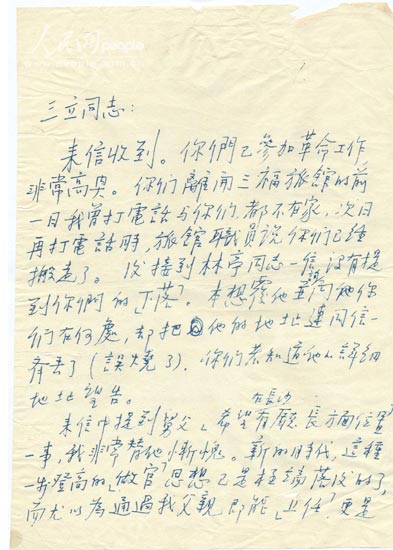 人民网 people
三立同志：
来信收到。你們已參加革命工作
非常高兴。你们離開三福旅館的前
一日我曾打電話与你们，都不在家，次日
再打電話時，旅館職員說你們已經
搬走了。後接到林亭同志一信，没有提
到你們的「下落」。本想覆他並詢问他你
们在何處，却把他的地址連同信一
齊丢了（誤燒了）。你們若知道他的詳細
地址望告。
来信中提到舅父「希望在長沙有廳長方面位置」
一事，我非常替他慚愧。新的时代，這種
一步登高的「做官」思想已是極端落後的了，
而尤以為通過我父親即能「上任」，更是